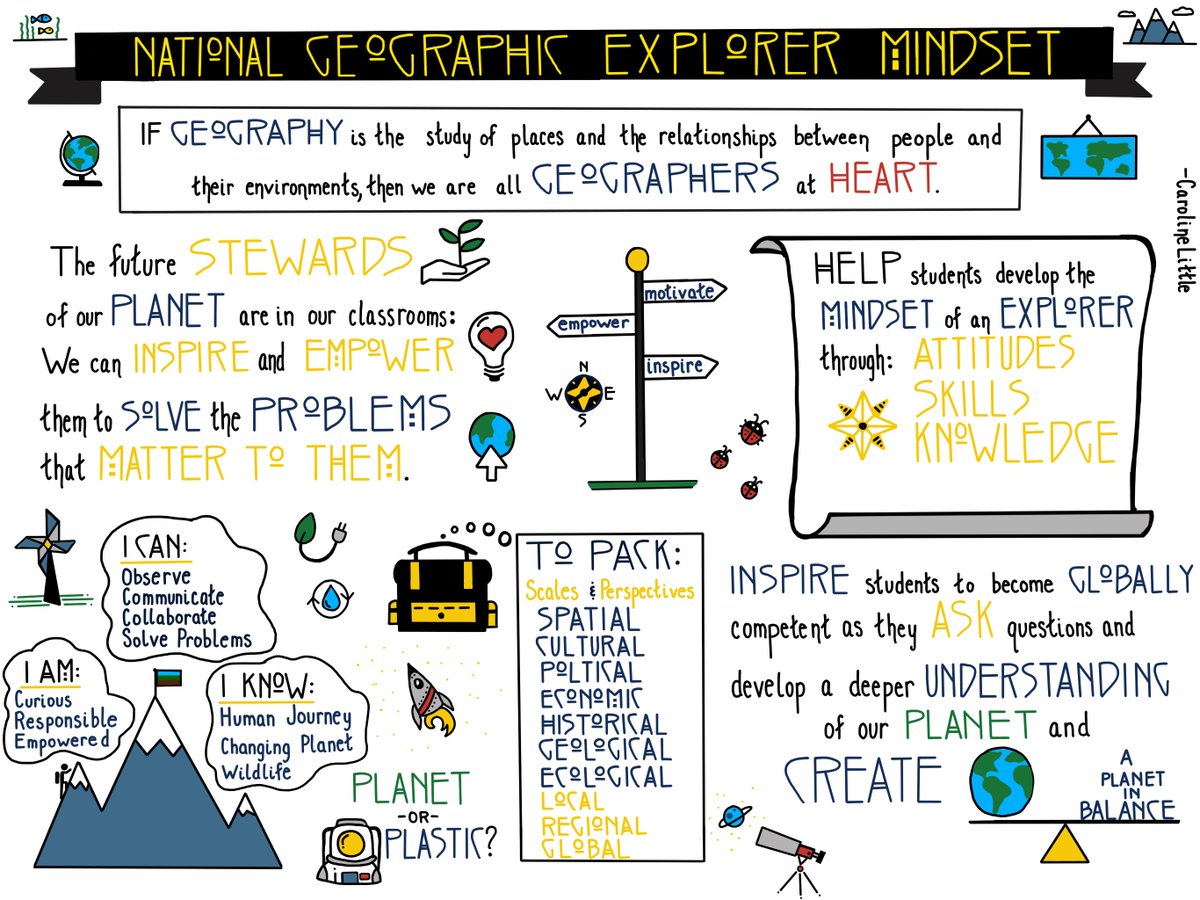 NATIONAL GEOGRAPHIC EXPLORER MINDSET
IF GEOGRAPHY is the study of places and the relationships between people and
their environments, then we are all GEOGRAPHERS at HEART.
-Caroline Little
The future STEWARDS
of our PLANET are in our classrooms:
We can INSPIRE and EMPOWER
them to SOLVE the PROBLEMS
that MATTER TO THEM.
motivate
empower
inspire
N
W E
S
HELP students develop the
MINDSET of an EXPLORER
through: ATTITUDES
SKILLS
KNOWLEDGE
I CAN:
Observe
Communicate
Collaborate
Solve Problems
I AM:
Curious
Responsible
Empowered
I KNOW:
Human Journey
Changing Planet
Wildlife
PLANET
-OR-
PLASTIC?
TO PACK:
Scales & Perspectives
SPATIAL
CULTURAL
POLTICAL
ECONOMIC
HISTORICAL
GEOLOGICAL
ECOLOGICAL
LOCAL
REGIONAL
GLOBAL
INSPIRE students to become GLOBALLY
competent as they ASK questions and
develop a deeper UNDERSTANDING
of our PLANET and
CREATE
A
PLANET
IN
BALANCE